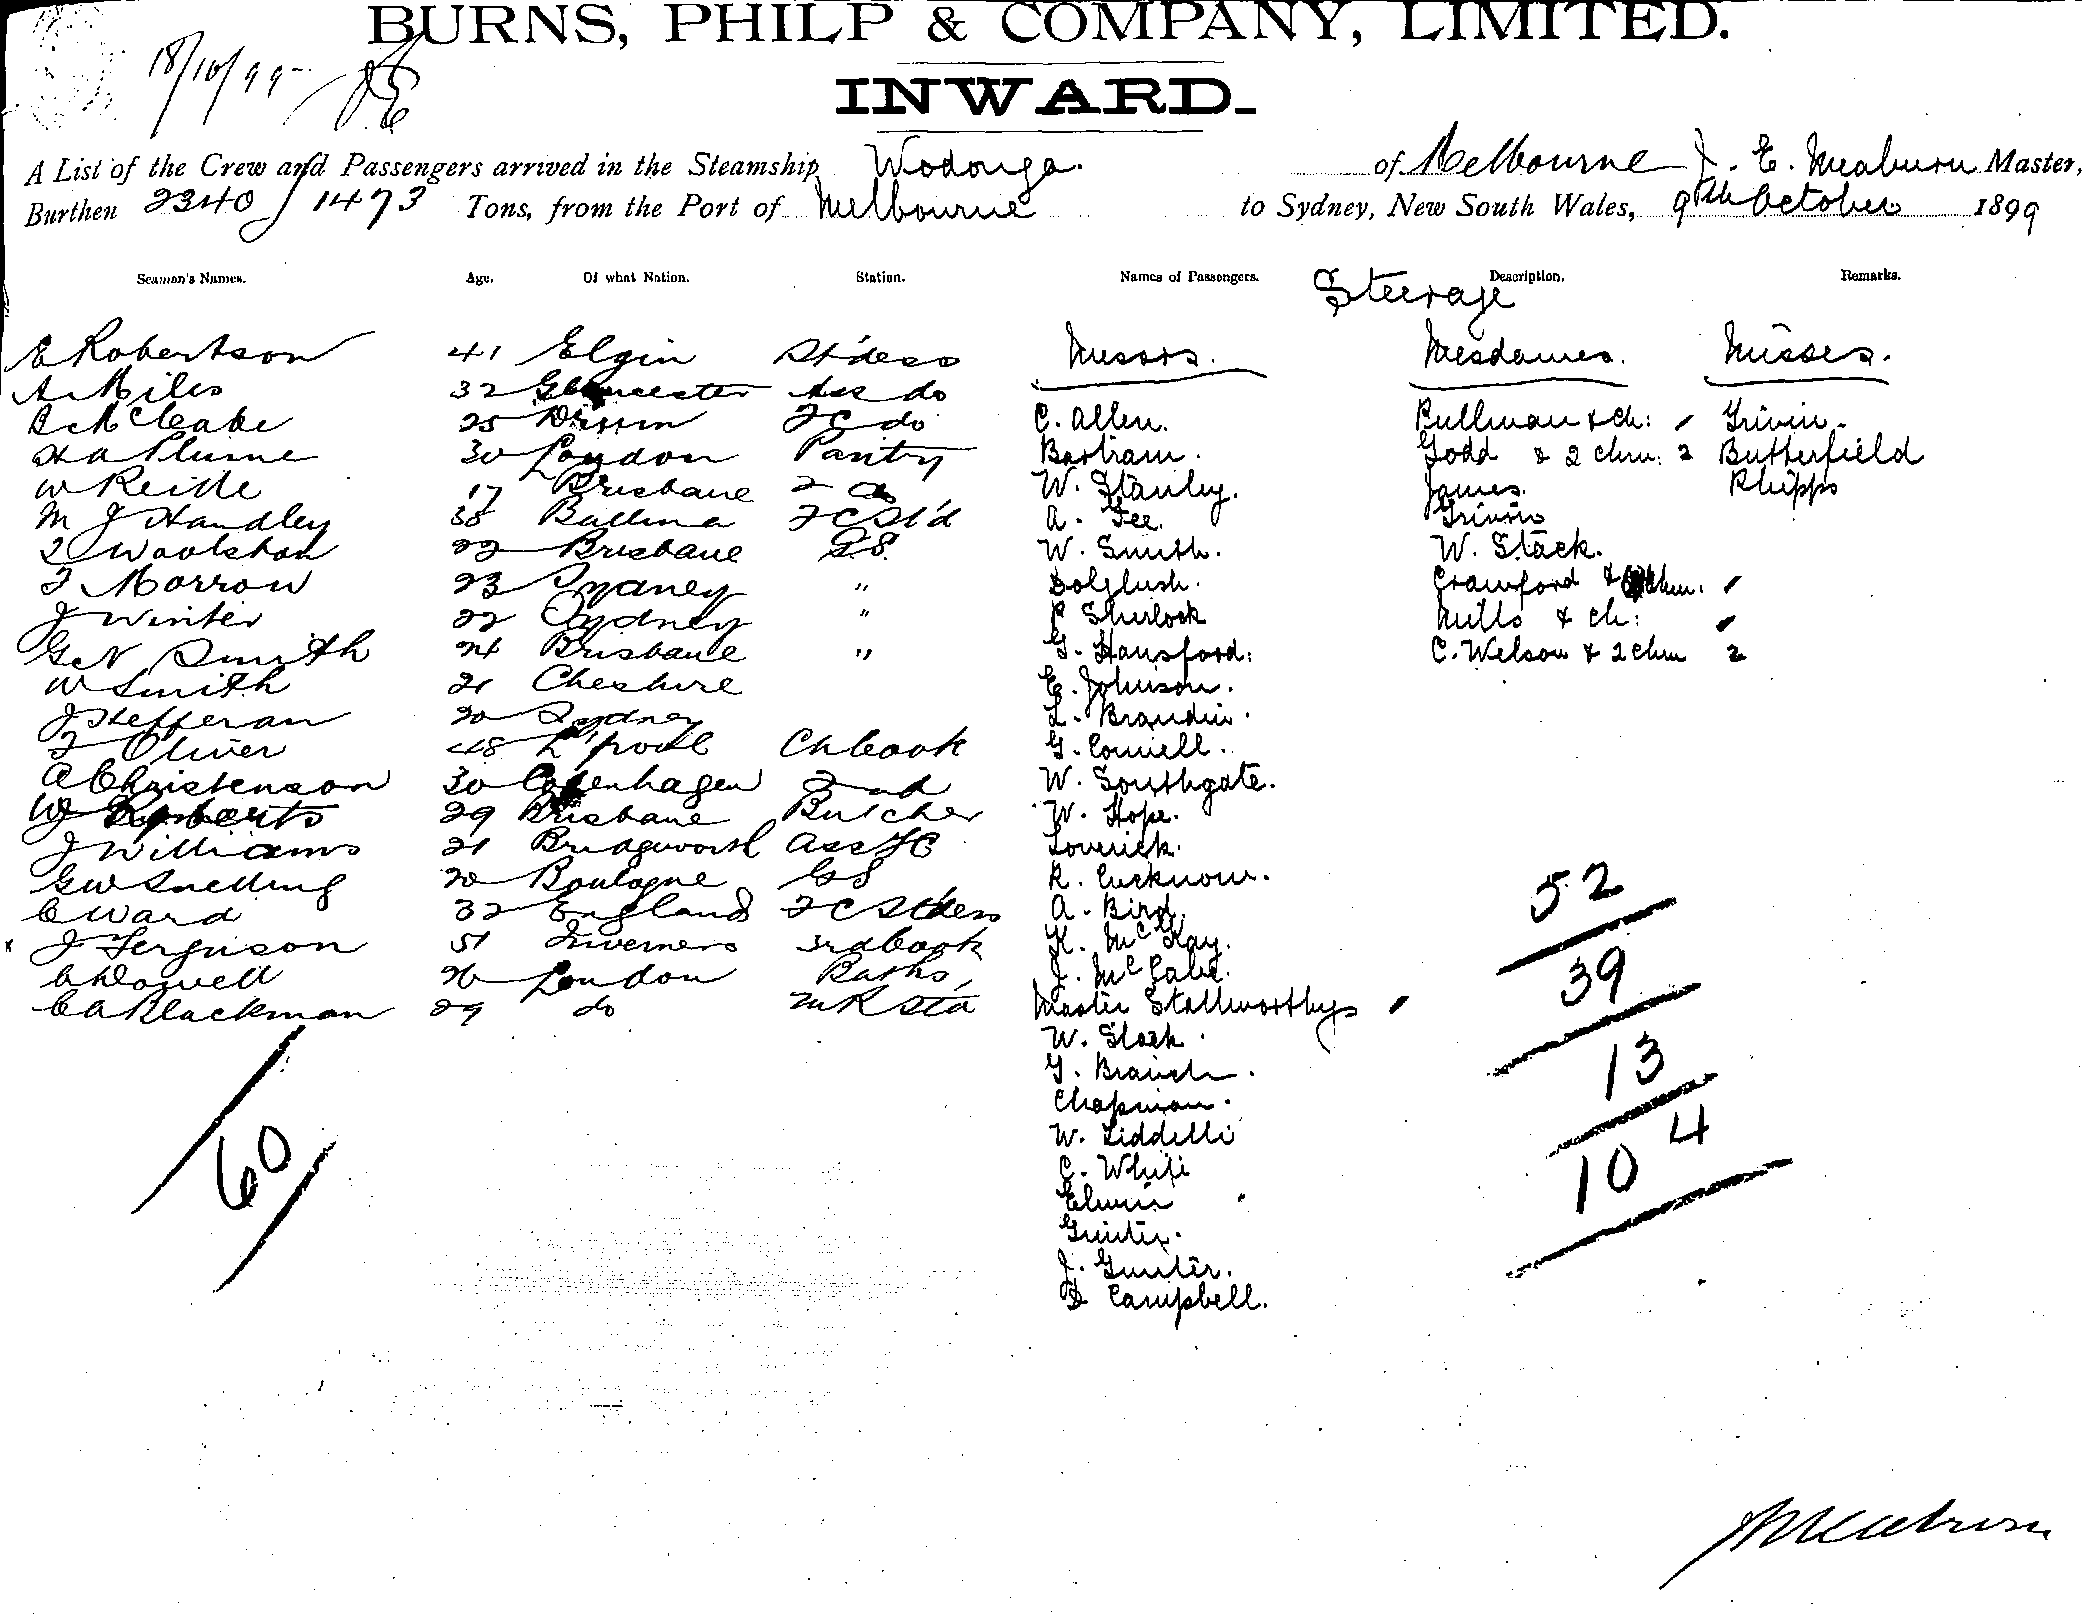 BURNS, PHILP & COMPANY, LIMITED.
18/10/99
INWARD.
A List of the Crew and Passengers arrived in the Steamship Wodonga. of Melbourne J. E. Meaburn Master,
Burthen 2340/1473 Tons, from the Port of Melbourne to Sydney, New South Wales, 9th October 1899
Seaman's Names. Age. Of what Nation. Station. Names of Passengers. Description. Remarks.
Steerage
E Robertson 41 Elgin St'dess Messrs. Mesdames. Misses.
A Miles 32 Gloucester Ass do
B McCabe 25 FC do C. Allen. Pullman & Ch: Girvin.
H A Plume 30 London Pantry Bartram. Todd & 2 chn: 2 Butterfield
W Reide 17 Brisbane 2 W. Stanley. James. Phipps
M J Handley 38 Ballina FC St'd A. Fee. Girvin
Woolston 22 Brisbane GS. W. Smith. W. Stack.
F Morrow 23 Sydney " Dolglush. Crawford & chn.
J Winter 22 Sydney " P Sherlock Mills & Ch:
G N Smith 24 Brisbane " G. Hansford. C. Welson & 2 chn 2
W Smith 21 Cheshire E. Johnson.
J Hefferan 20 Sydney L. Brandin.
F Oliver 48 L'pool Ch Cook G. Connell.
A Christenson 30 Copenhagen 2nd W. Southgate.
W J Roberts 29 Brisbane Butcher W. Hope.
J Williams 21 Bridgworth Ass FC Loverick.
G W Snelling 20 Boulogne GS R. Lucknow.
C Ward 32 England FC St'dess A. Bird.
x J Ferguson 51 Inverness 3rd Cook K. McKay.
C Dowell 26 London Baths, J. McCabe.
C A Blackman 29 do Master Stallworthy
W. Slack.
G. Branch.
Chapman.
W. Liddelli
C. White
Elwin
Gunter.
J. Gunter.
D Campbell.
60
52
39
13
104
J Meaburn